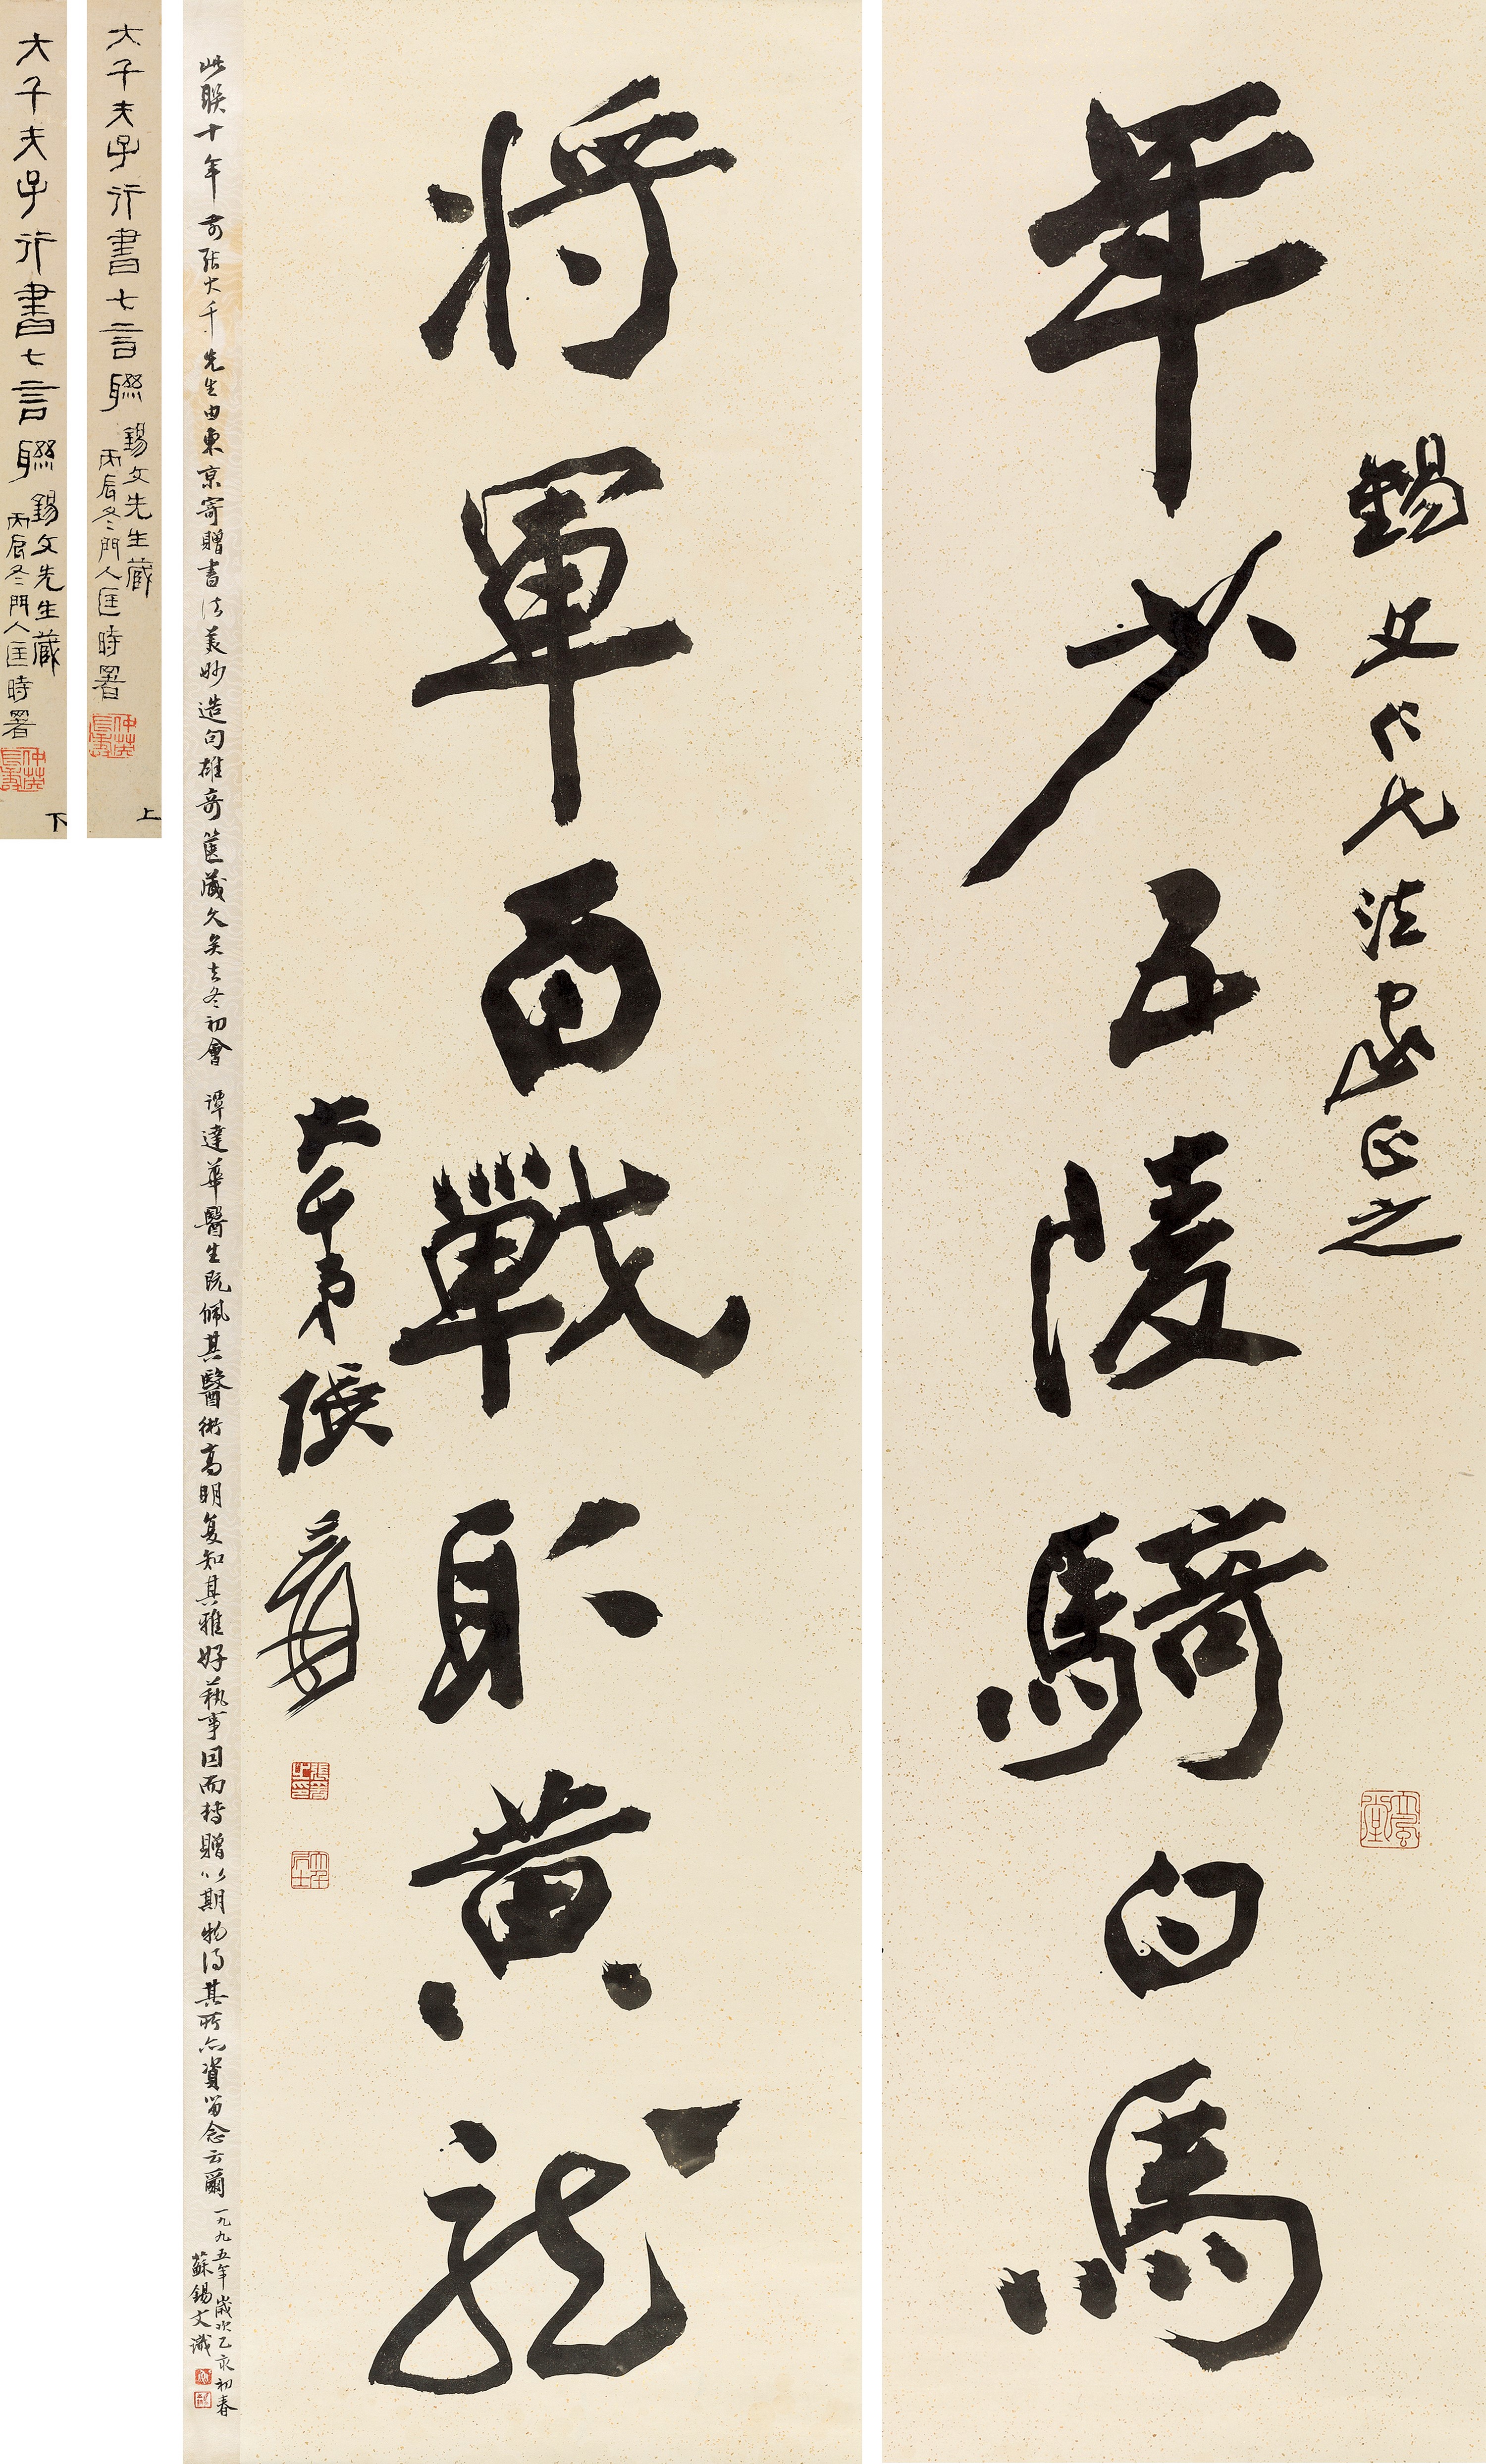 年少五陵騎白馬
錫文仁兄法家正之
將軍百戰取黃龍
大千弟張爰
此聯十年前張大千先生由東京寄贈書法美妙造句雄奇篋藏久矣去冬初會譚達華醫生既佩其醫術高明复知其雅好藝事因而轉贈以期物得其所亦資留念云爾
一九九五年歲次乙亥初春
蘇錫文識
大千夫子行書七言聯
錫文先生藏
丙辰冬門人匡時署
上
大千夫子行書七言聯
錫文先生藏
丙辰冬門人匡時署
下
大風堂
張爰之印
大千居士